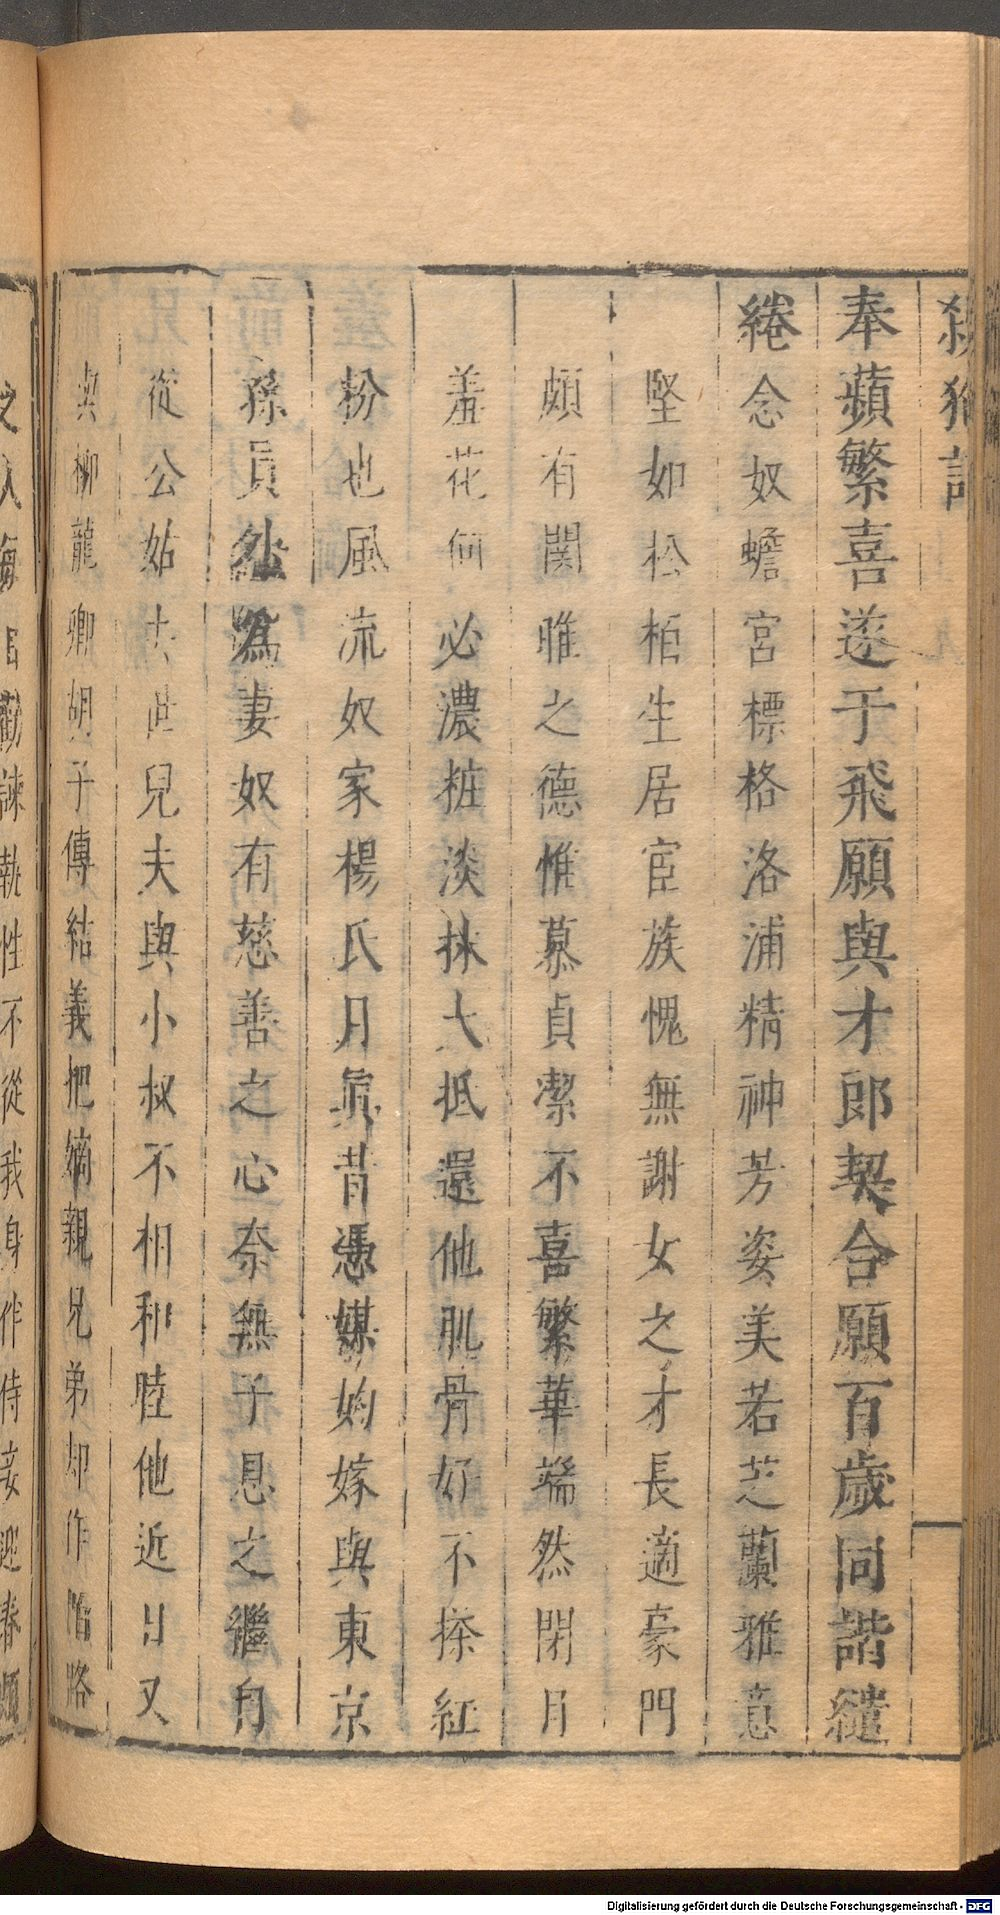 殺狗記
奉蘋蘩喜遂于飛願與才郎契合願百歲同諧繾
綣念奴蟾宮標格洛浦精神芳姿美若芝蘭雅意
堅如松柏生居宦族愧無謝女之才長適豪門
頗有関雎之德惟慕貞潔不喜繁華端然閉月
羞花何必濃粧淡抹大抵還他肌骨好不搽紅
粉也風流奴家楊氏月眞昔憑媒妁嫁與東京
孫員外為妻奴有慈善之心奈無子息之繼自
從公姑去世兒夫與小叔不相和睦他近日又
與柳龍卿胡子傳結義把嫡親兄弟却作陌路
之人每每勸諫執性不從我身伴侍妾迎春頗
Digitalisierung gefördert durch die Deutsche Forschungsgemeinschaft - DFG